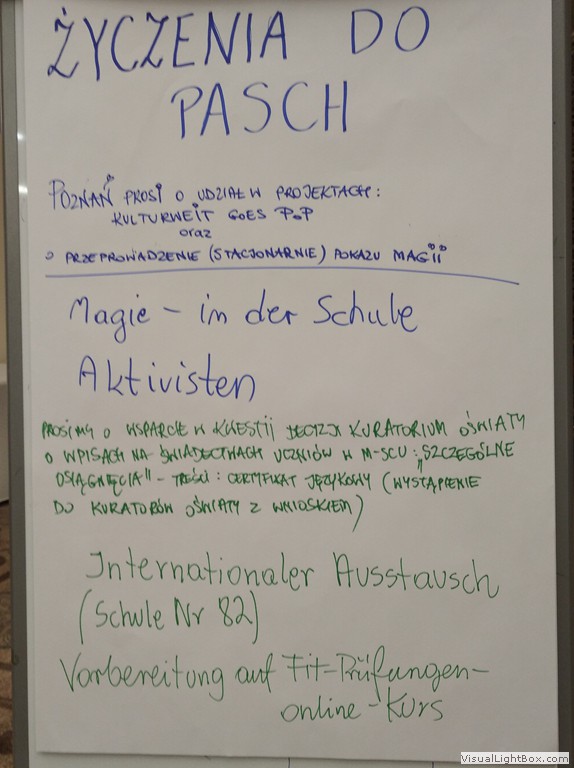 ŻYCZENIA DO
PASCH
POZNAŃ PROSI O UDZIAŁ W PROJEKTACH:
KULTURWEIT GOES POP
oraz
O PRZEPROWADZENIE (STACJONARNIE) POKAZU MAGII
Magie – in der Schule
Aktivisten
PROSIMY O WSPARCIE W KWESTII DECYZJI KURATORIUM OŚWIATY
O WPISACH NA ŚWIADECTWACH UCZNIÓW W M-SCU: "SZCZEGÓLNE
OSIĄGNIĘCIA" – TREŚCI: CERTYFIKAT JĘZYKOWY (WYSTĄPIENIE
DO KURATORÓW OŚWIATY Z WNIOSKIEM)
Internationaler Ausstausch
(Schule Nr 82)
Vorbereitung auf Fit-Prüfungen-
online-Kurs
VisualLightBox.com